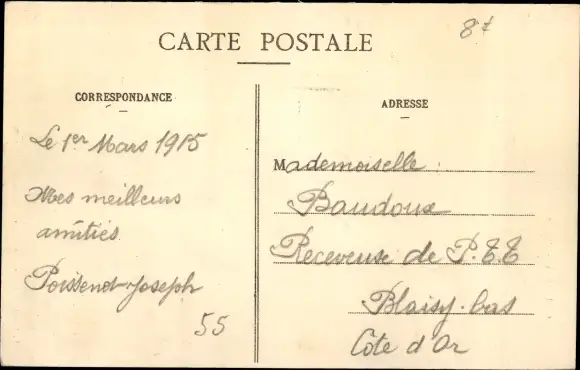 CARTE POSTALE
8t
CORRESPONDANCE
ADRESSE
Le 1er Mars 1915
Mes meilleurs
amitiés
Poissenot Joseph
55
Mademoiselle
Baudoux
Receveuse de P.T.T
Blaisy-bas
Côte d'Or